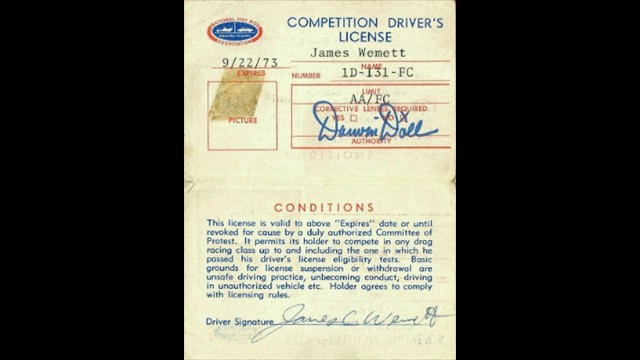 NATIONAL HOT ROD
ASSOCIATION
COMPETITION DRIVER'S
LICENSE
James Wemett
NAME
9/22/73
EXPIRES
NUMBER 1D-131-FC
LIMIT
AA/FC
CORRECTIVE LENSES REQUIRED
YES NO X
PICTURE
Darwin Doll
AUTHORITY
CONDITIONS
This license is valid to above "Expires" date or until
revoked for cause by a duly authorized Committee of
Protest. It permits its holder to compete in any drag
racing class up to and including the one in which he
passed his driver's license eligibility tests. Basic
grounds for license suspension or withdrawal are
unsafe driving practice, unbecoming conduct, driving
in unauthorized vehicle etc. Holder agrees to comply
with licensing rules.
Driver Signature James C Wemett